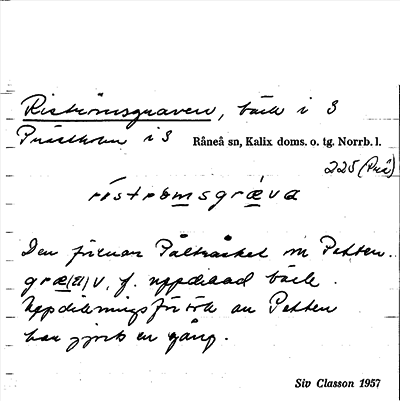 Riströmsgraven, bäck i S
Prästholm i S Råneå sn, Kalix doms. o. tg. Norrb. l.
225 (Prä)
riströmsgræva
Den förenar Pålträsket m Petten.
græ(a)v, f. uppdikad bäck.
Uppdikningsförsök av Petten
har gjorts en gång.
Siv Classon 1957